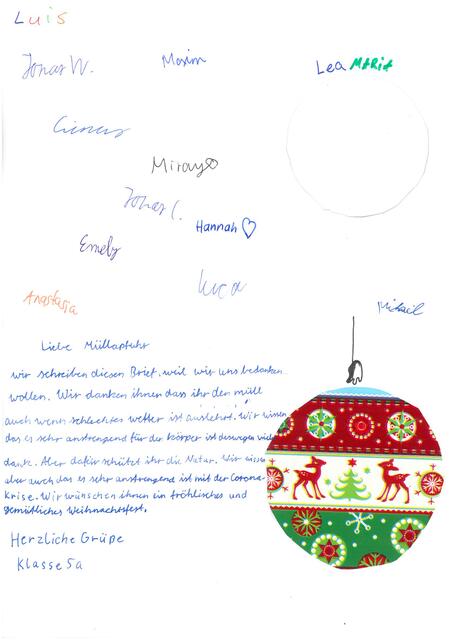 Luis
Jonas W.
Maxim
Lea MARIA
Miray
Jonas C.
Hannah
Emely
Luca
Anastasia
Mikail
Liebe Müllapfuhr
wir schreiben diesen Brief, weil wir uns bedanken
wollen. Wir danken ihnen dass ihr den müll
auch wenn schlechtes wetter ist auslehrt. Wir wissen
das es sehr anstrengend für der körper ist deswegen viel
dank. Aber dafür schützt ihr die Natur. Wir wissen
aber auch das es sehr anstrengend ist mit der Corona-
krise. Wir wünschen ihnen ein fröhlisches und
gemütliches Weihnachtsfest.
Herzliche Grüße
Klasse 5a